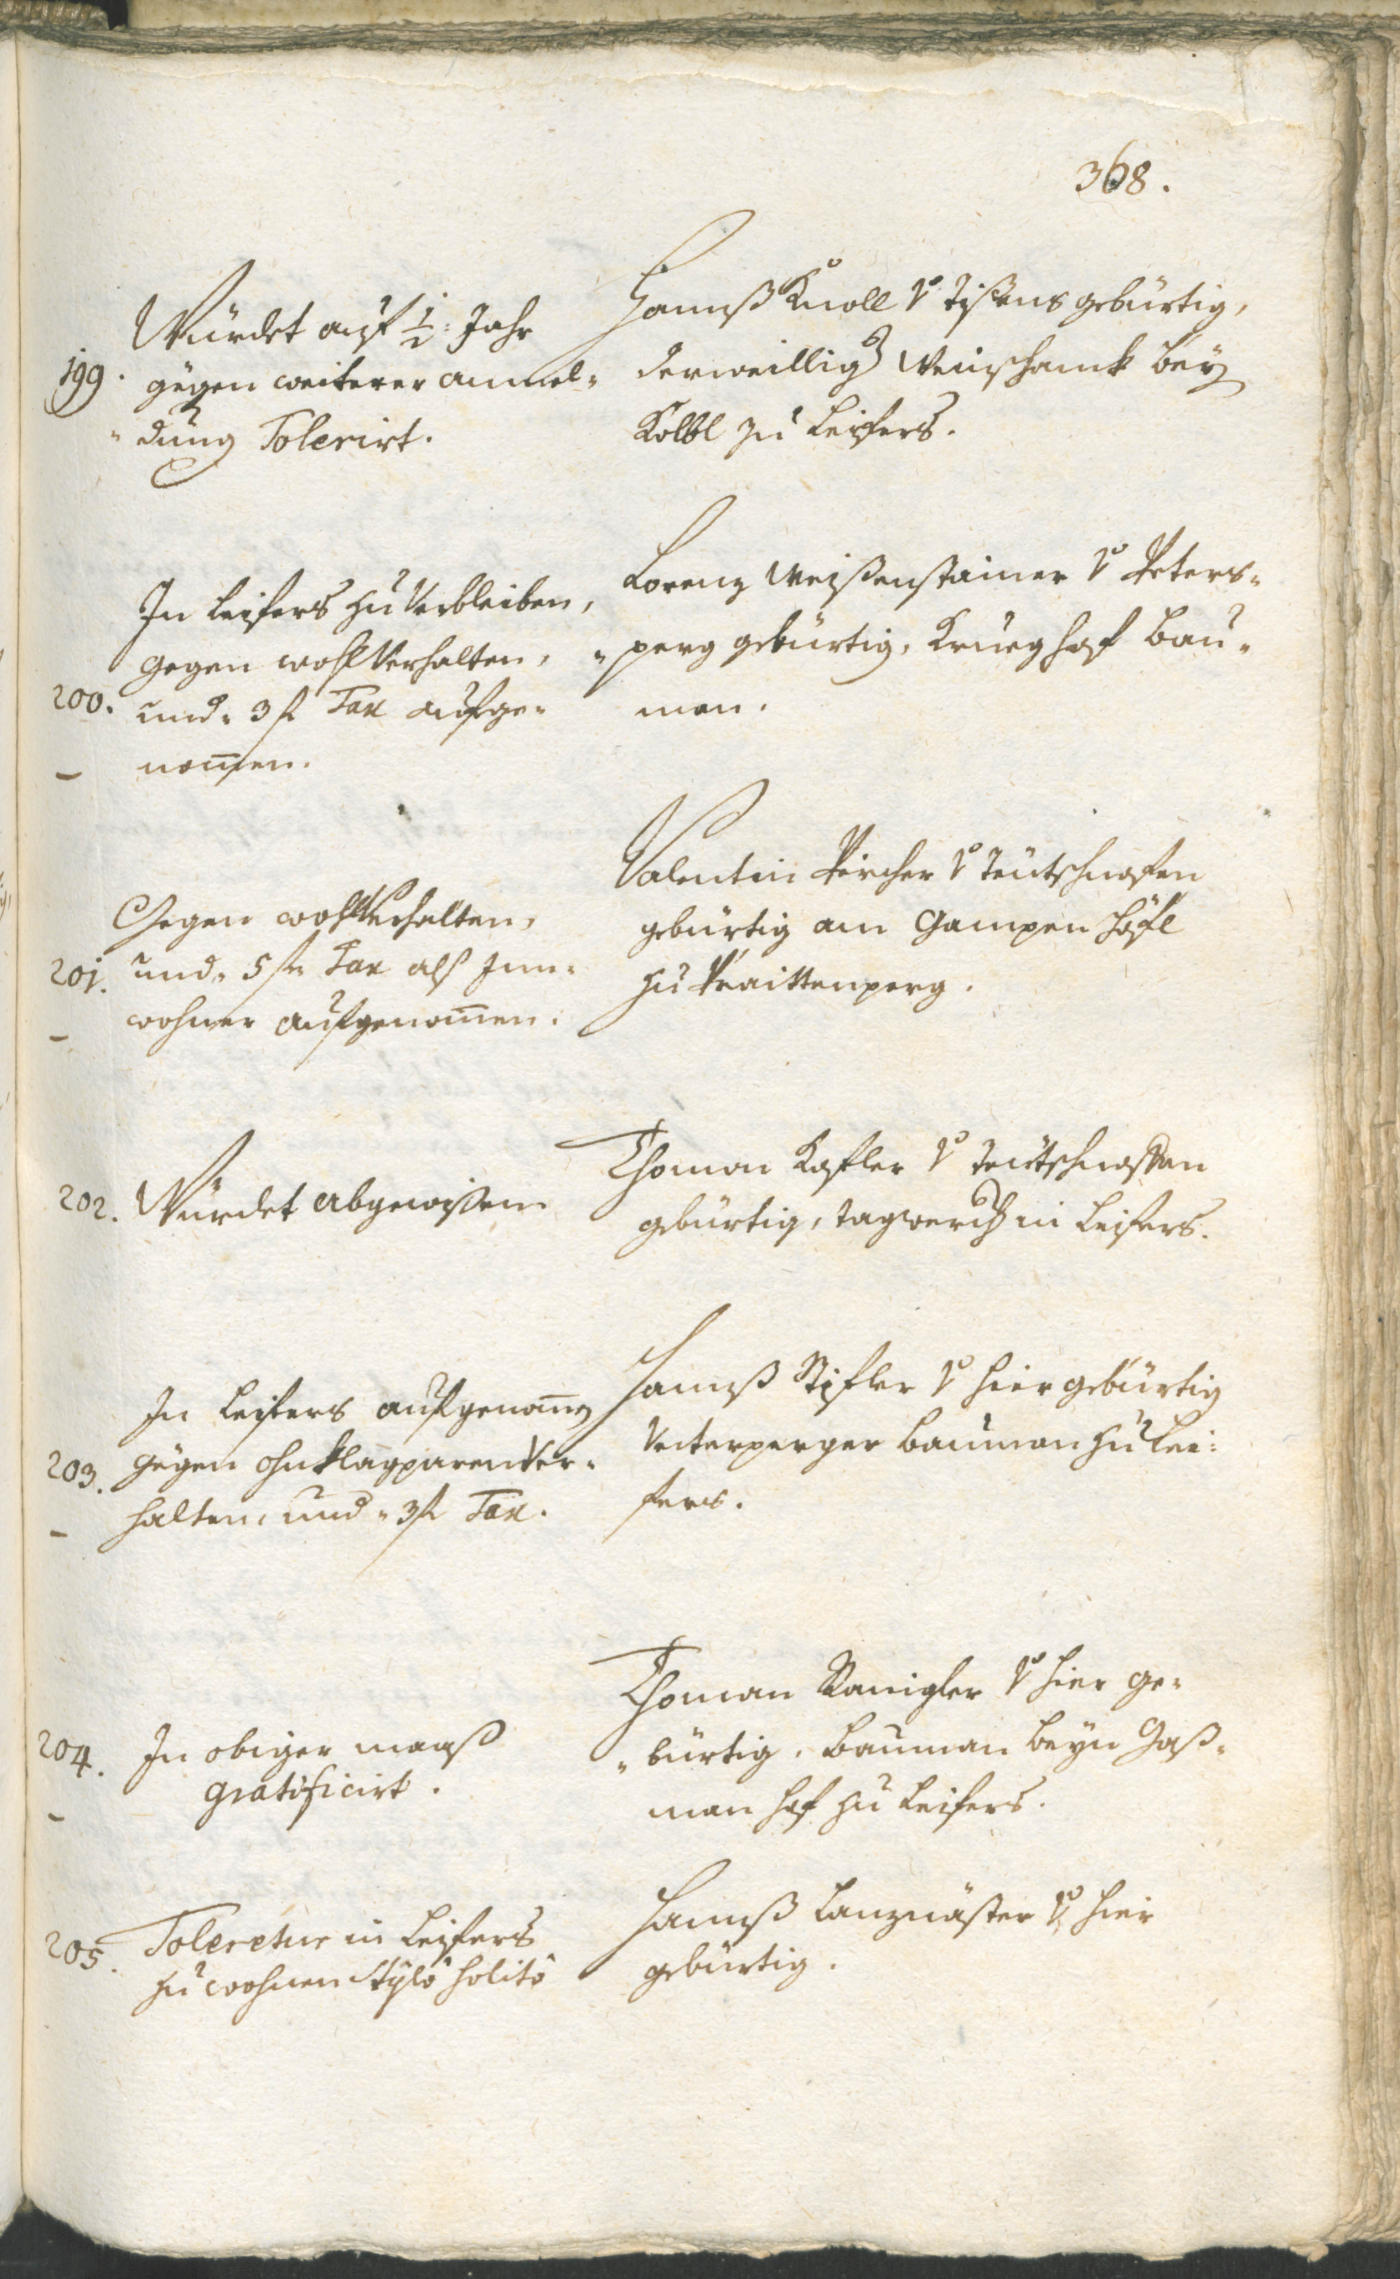 368.
199.
Würdet auf 1/2: Jahr
gegen weiterer anmel=
=dung Tolerirt.
Hannß Knoll vo Tißens gebürtig,
derweillig Weinschank bey
Kölbl zu Leifers.
200.
In Leifers zu Verbleiben,
gegen wohlVerhalten,
und 3 fl Tax aufge=
nom̅en.
Lorenz Weißenstainer vo Peters=
=perg gebürtig, Krueghof Bau=
man.
201.
Gegen wohlVerhalten,
und 5 fl Tax alß Inn=
wohner aufgenom̅en.
Valentin Pircher vo Teutschnofen
gebürtig am Gampen Höfl
zu Praittenperg.
202.
Würdet abgewißen
Thoman Kofler vo Teutschnofen
gebürtig, tagwerch in Leifers.
203.
In Leifers aufgenom̅en
gegen ohnklagparen Ver=
halten, und 3 fl Tax.
Hannß Pichler vo hier gebürtig
Unterperger Bauman zu Lei=
fers.
204.
In obiger maaß
gratificirt.
Thoman Ranigler vo hier ge=
=bürtig, Bauman beyn Gaß=
man hof zu Leifers.
205.
Toleretur in Leifers
zu wohnen Stylô solitô
Hannß Lanznäster vo hier
gebürtig.